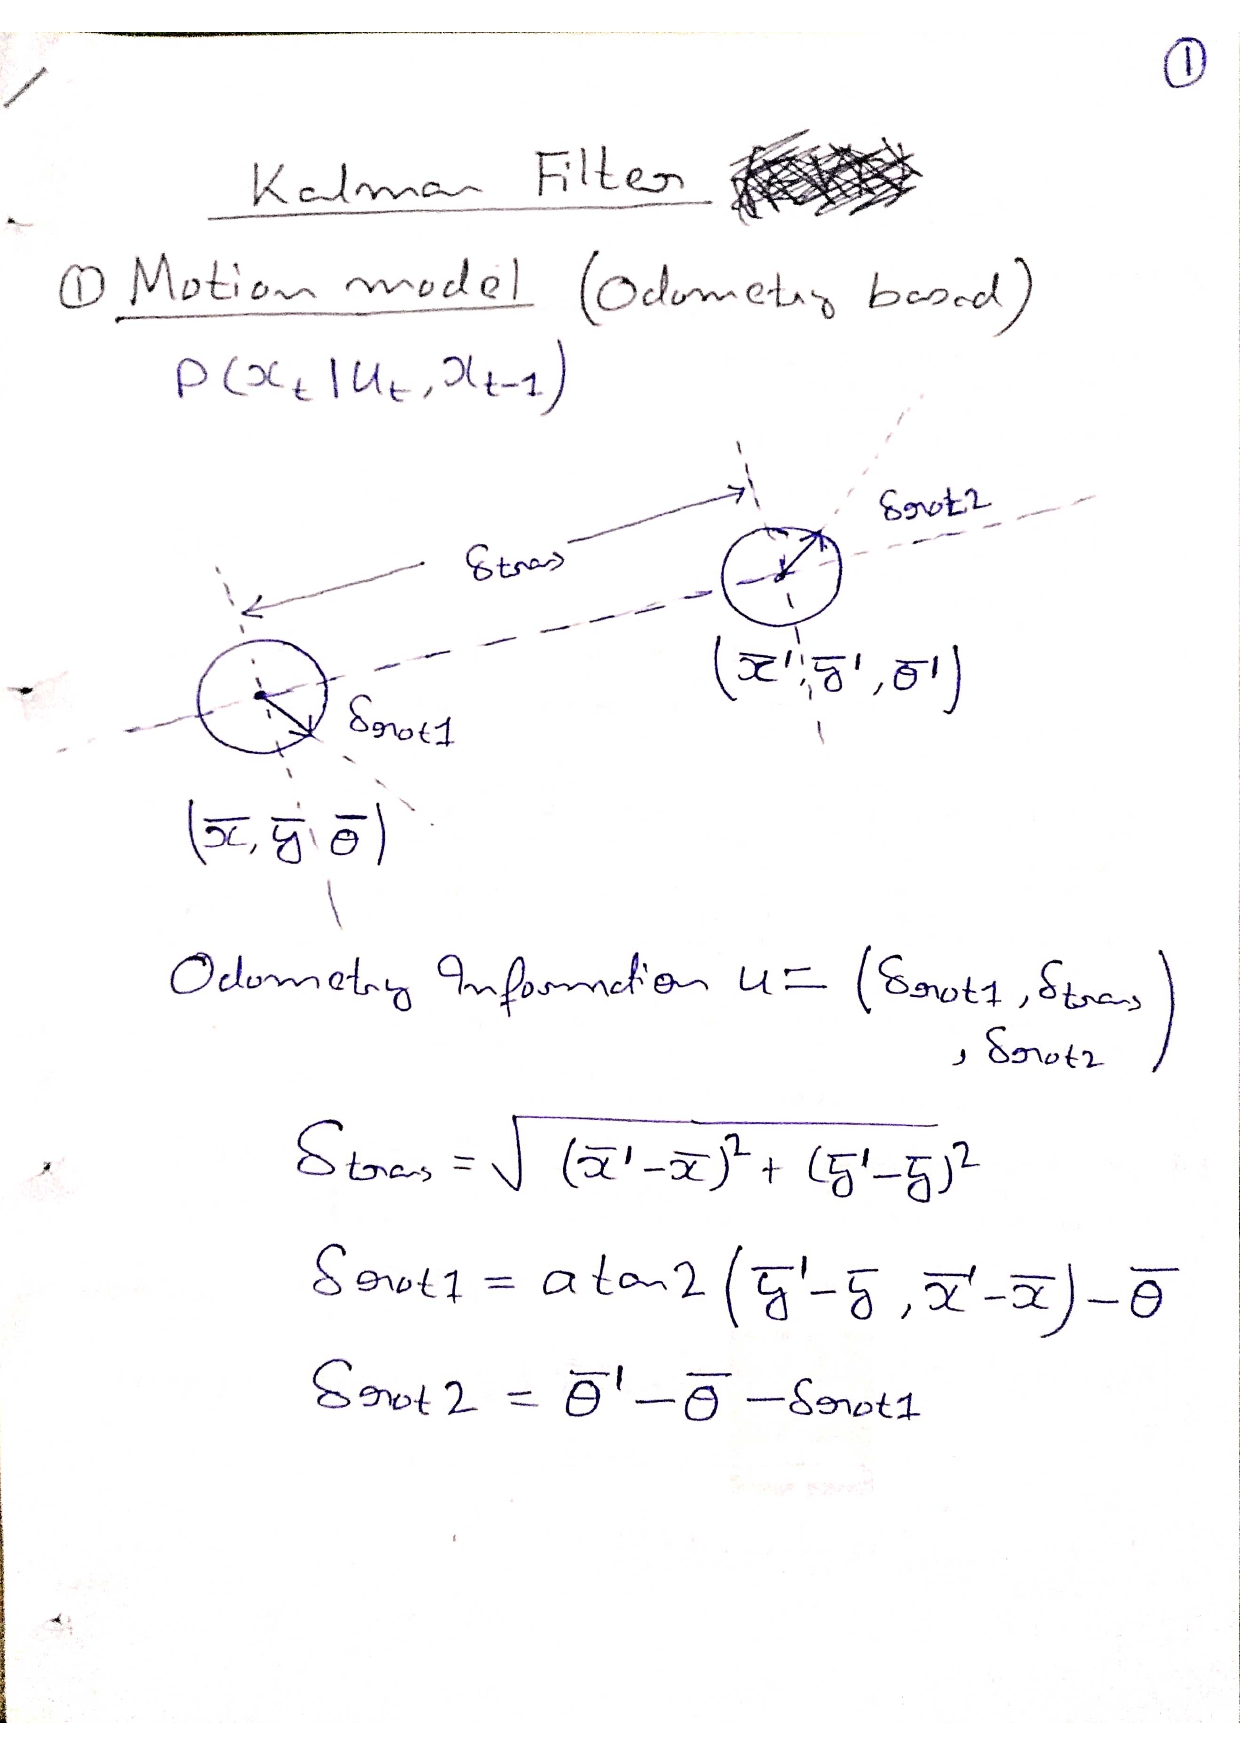 ①
Kalman Filter
① Motion model (Odometry based)
P(x_t | u_t, x_{t-1})
δrot2
δtrans
(x̄', ȳ', θ̄')
δrot1
(x̄, ȳ, θ̄)
Odometry Information u = (δrot1, δtrans
, δrot2)
δtrans = √(x̄'-x̄)² + (ȳ'-ȳ)²
δrot1 = atan2(ȳ'-ȳ, x̄'-x̄) - θ̄
δrot2 = θ̄' - θ̄ - δrot1